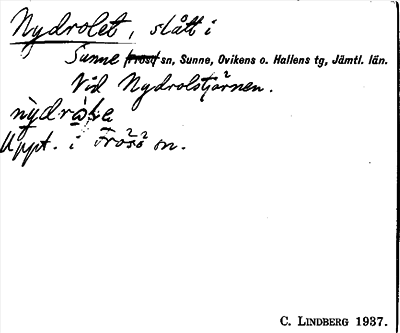 Nydrolet, slått i
Sunne sn, Sunne, Ovikens o. Hallens tg, Jämtl. län.
Vid Nydrolstjärnen.
Uppt. i Frösö sn.
C. LINDBERG 1937.